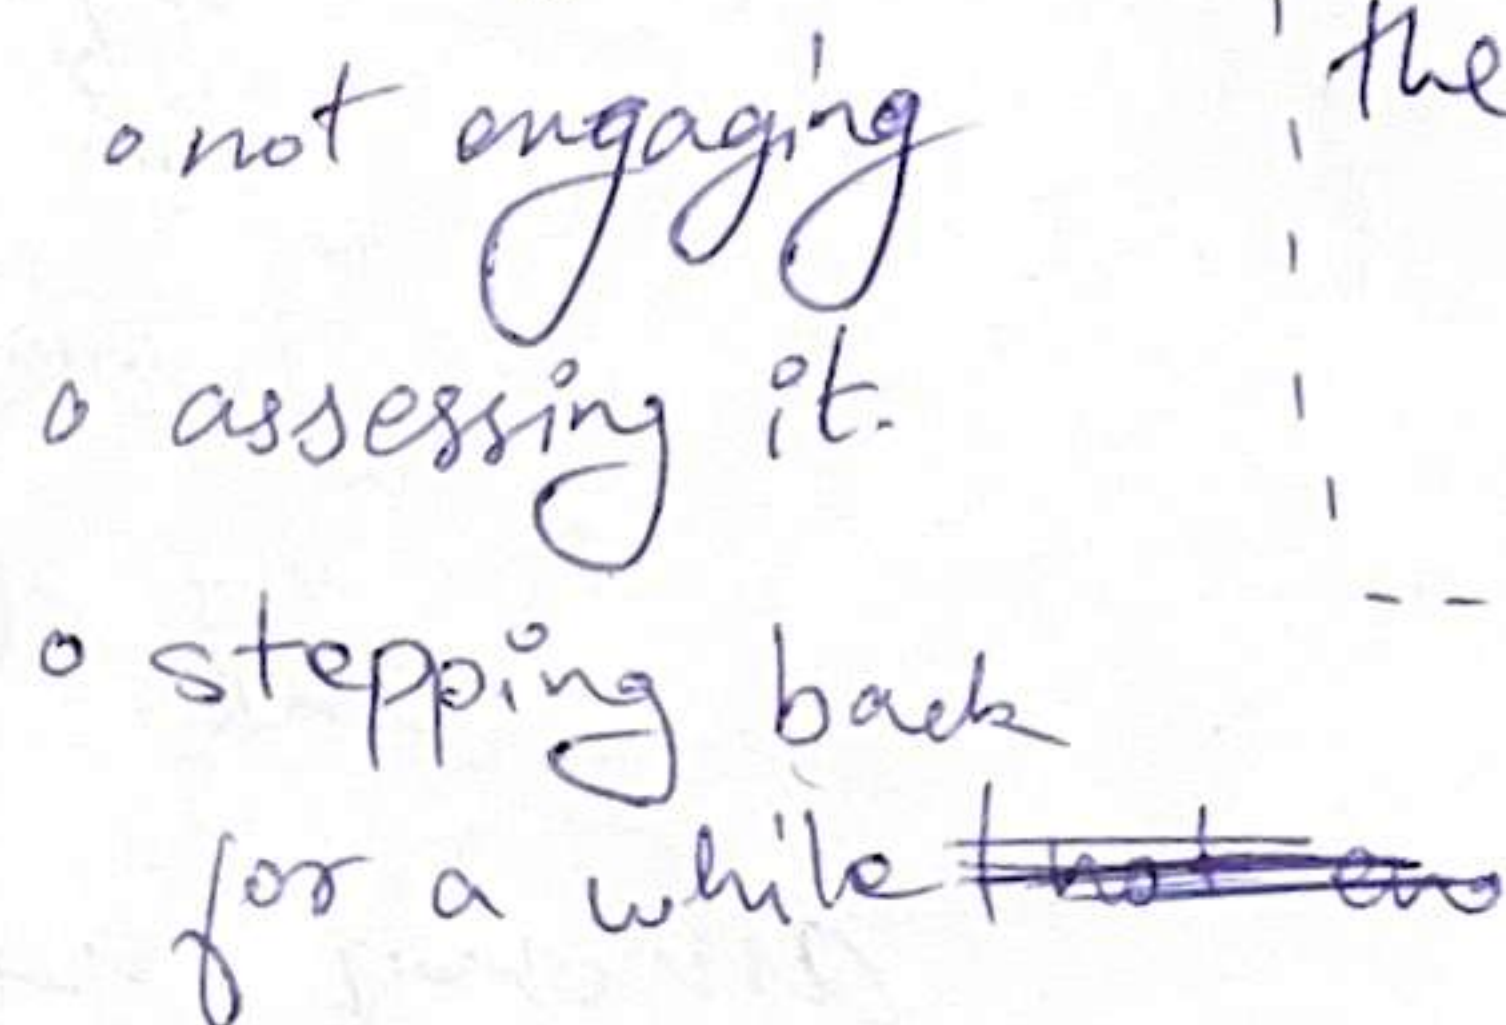 ◦ not engaging
the
◦ assessing it.
◦ stepping back
for a while